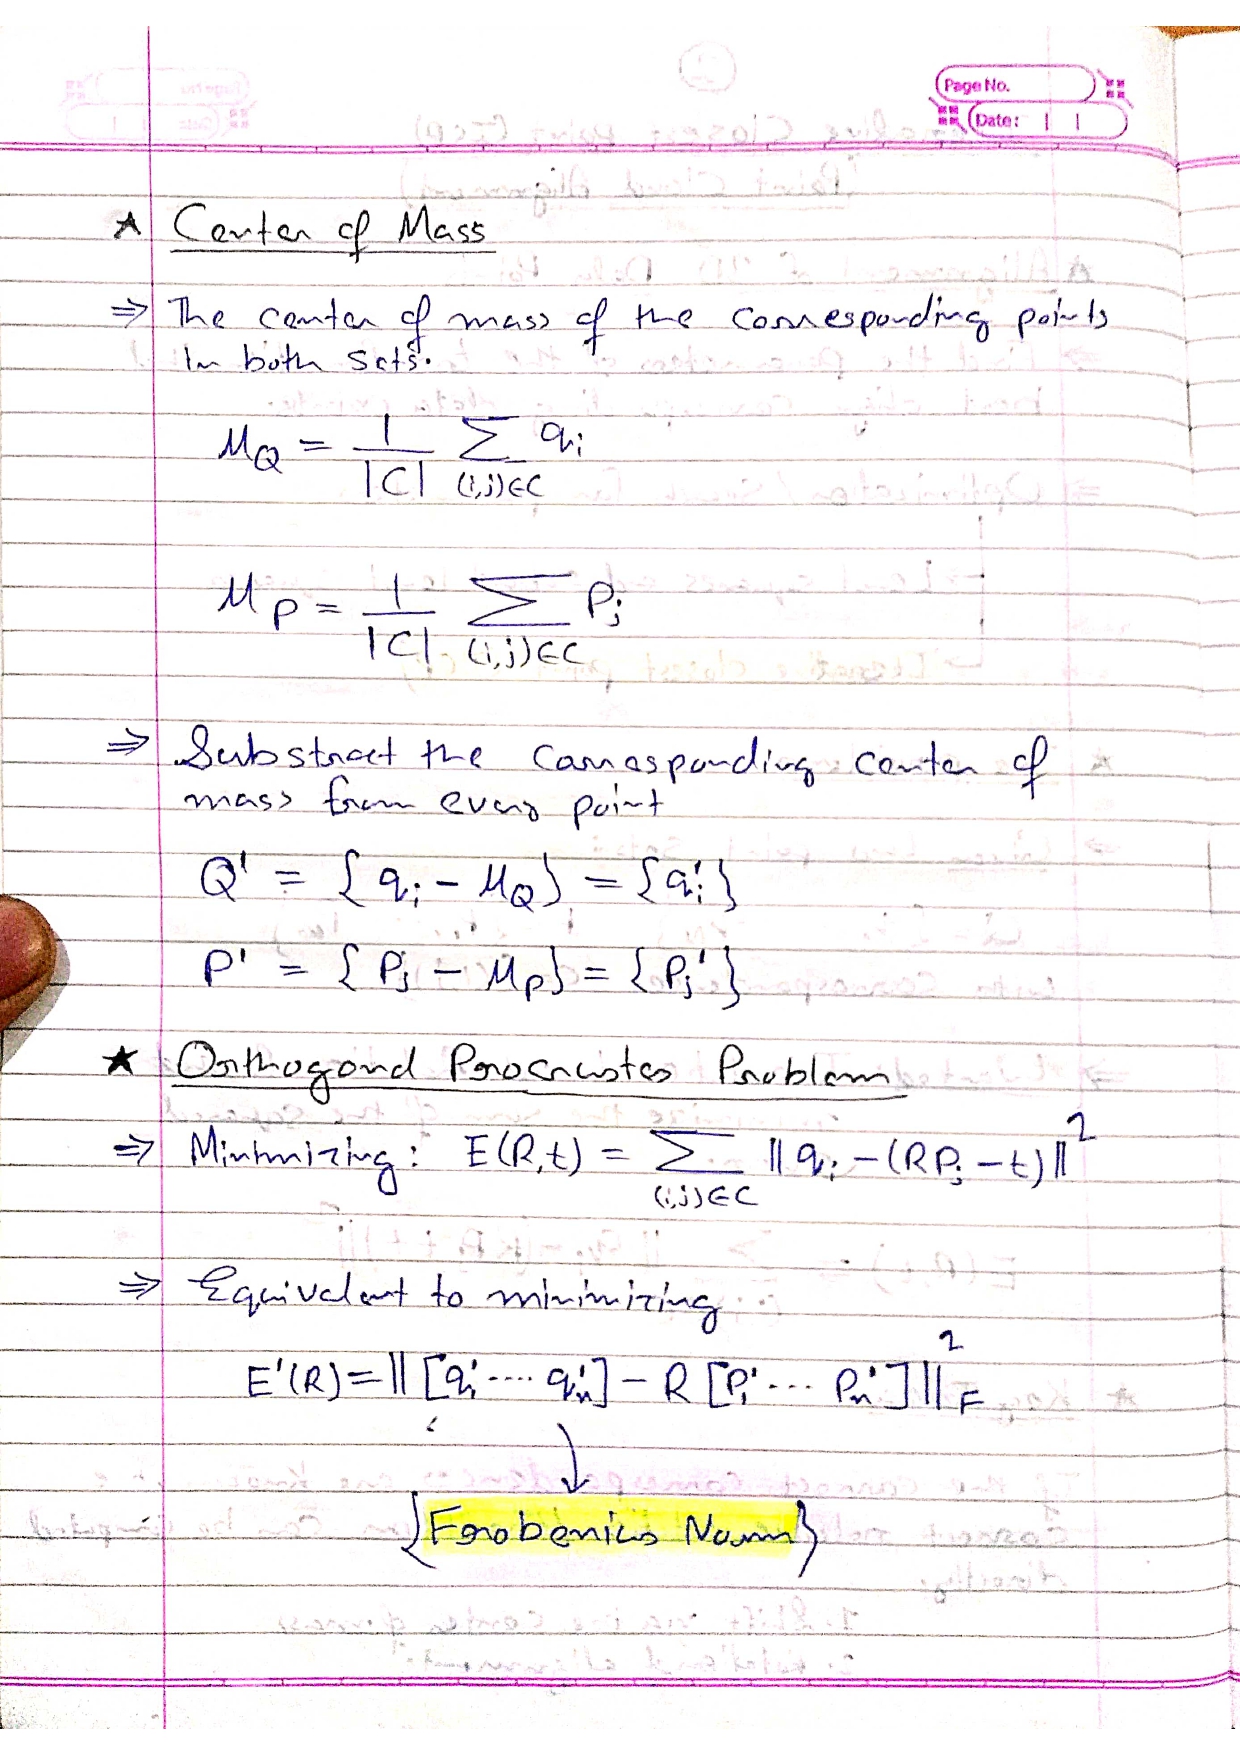 Page No.
Date:
★ Center of Mass
⇒ The center of mass of the corresponding points
in both sets.
μ_Q = 1/|C| Σ_{(i,j)∈C} q_i
μ_P = 1/|C| Σ_{(i,j)∈C} P_j
⇒ Substract the corresponding center of
mass from every point
Q' = {q_i - μ_Q} = {q_i'}
P' = {P_j - μ_P} = {P_j'}
★ Orthogonal Procrustes Problem
⇒ Minimizing: E(R,t) = Σ_{(i,j)∈C} ‖q_i - (RP_j - t)‖²
⇒ Equivalent to minimizing
E'(R) = ‖[q_i' .... q_n'] - R [P_i' ... P_n']‖²_F
{Frobenius Norm}